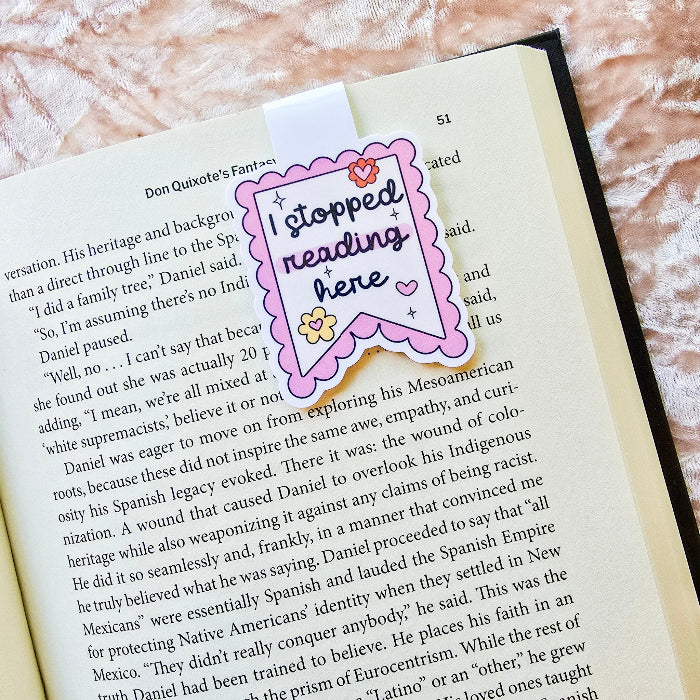 51
Don Quixote's Fantasy
I stopped
reading
here
cated
versation. His heritage and backgrou
than a direct through line to the Spa said.
"I did a family tree," Daniel said.
"So, I'm assuming there's no Indi and
Daniel paused. said,
"Well, no . . . I can't say that becau ll us
she found out she was actually 20 p
adding, "I mean, we're all mixed at
'white supremacists,' believe it or not
Daniel was eager to move on from exploring his Mesoamerican
roots, because these did not inspire the same awe, empathy, and curi-
osity his Spanish legacy evoked. There it was: the wound of colo-
nization. A wound that caused Daniel to overlook his Indigenous
heritage while also weaponizing it against any claims of being racist.
He did it so seamlessly and, frankly, in a manner that convinced me
he truly believed what he was saying. Daniel proceeded to say that "all
Mexicans" were essentially Spanish and lauded the Spanish Empire
for protecting Native Americans' identity when they settled in New
Mexico. "They didn't really conquer anybody," he said. This was the
truth Daniel had been trained to believe. He places his faith in an
the prism of Eurocentrism. While the rest of
"Latino" or an "other," he grew
His loved ones taught